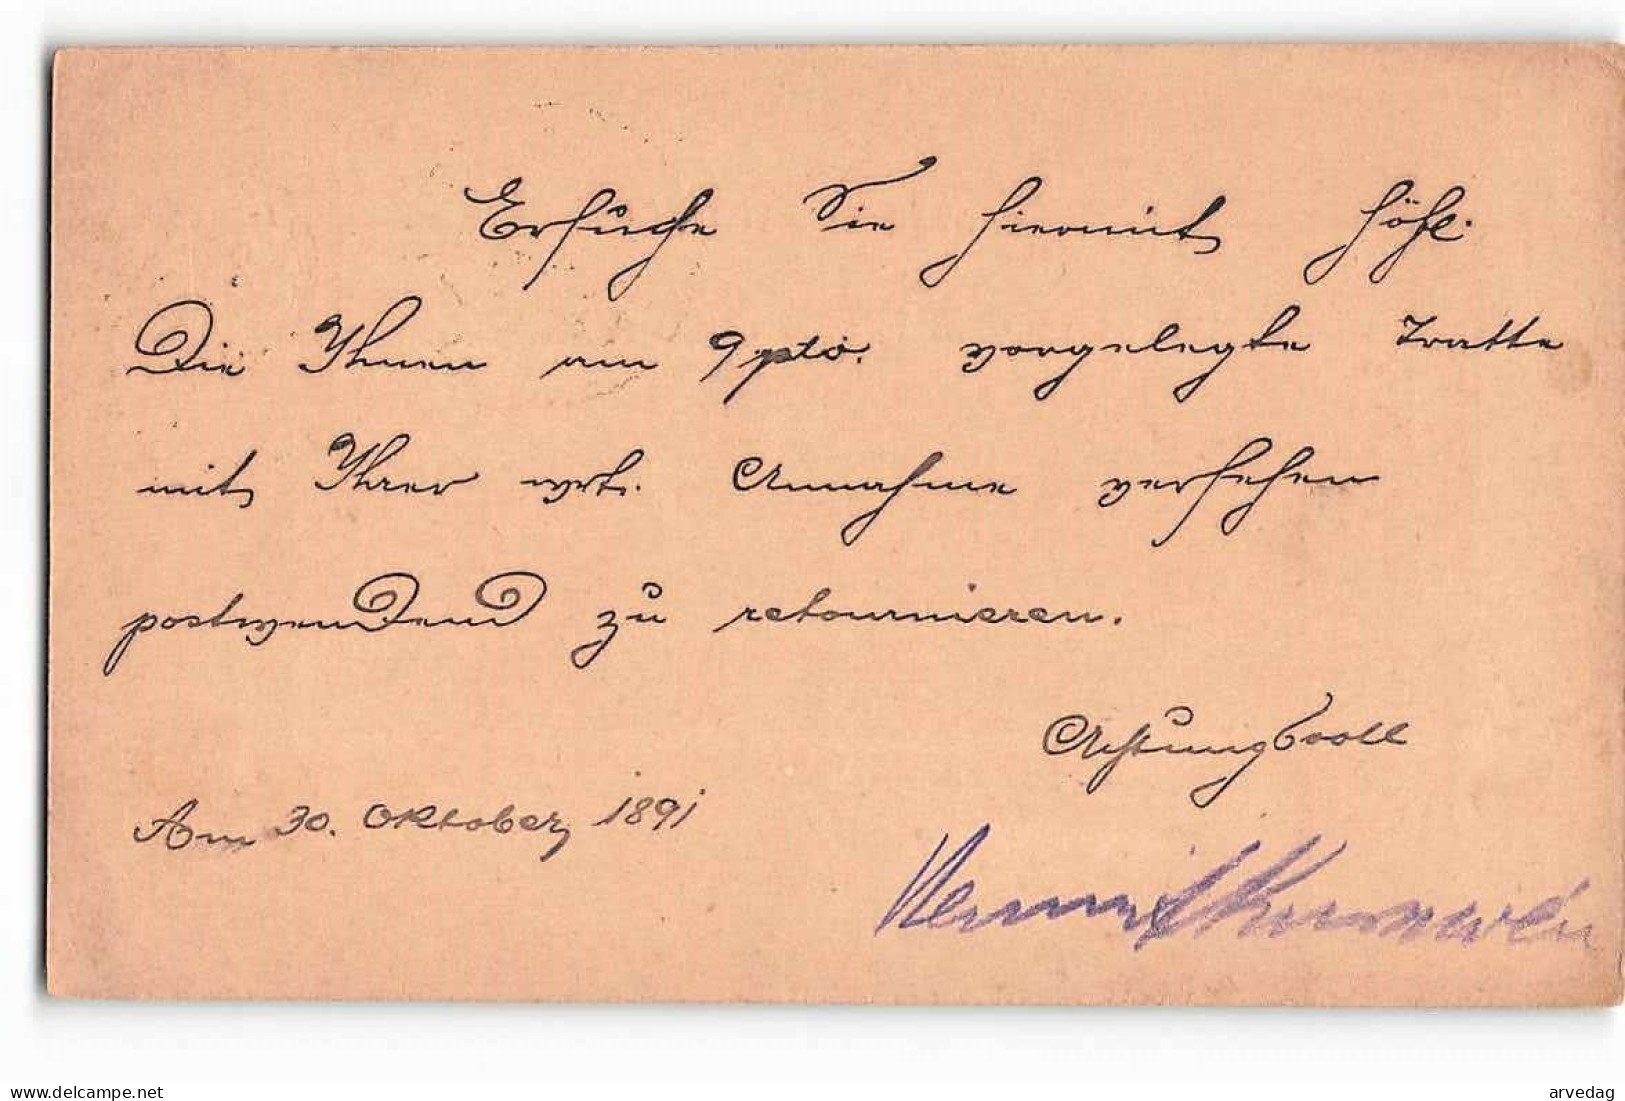 Ersuche Sie hiermit höfl.
Die Ihnen am 9 pto. vorgelegte Tratte
mit Ihrer wrt. Annahme versehen
postwendend zu retournieren.
Achtungsvoll
Am 30. Oktober 1891
delcampe.net
arvedag